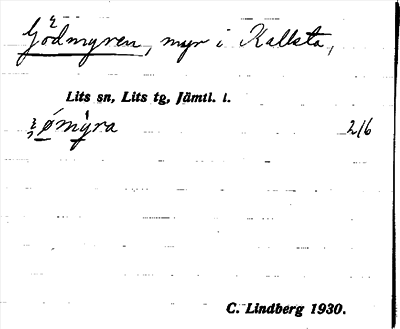 Gödmyren, myr i Kallsta,
Lits sn, Lits tg, Jämtl. l.
216
C. Lindberg 1930.